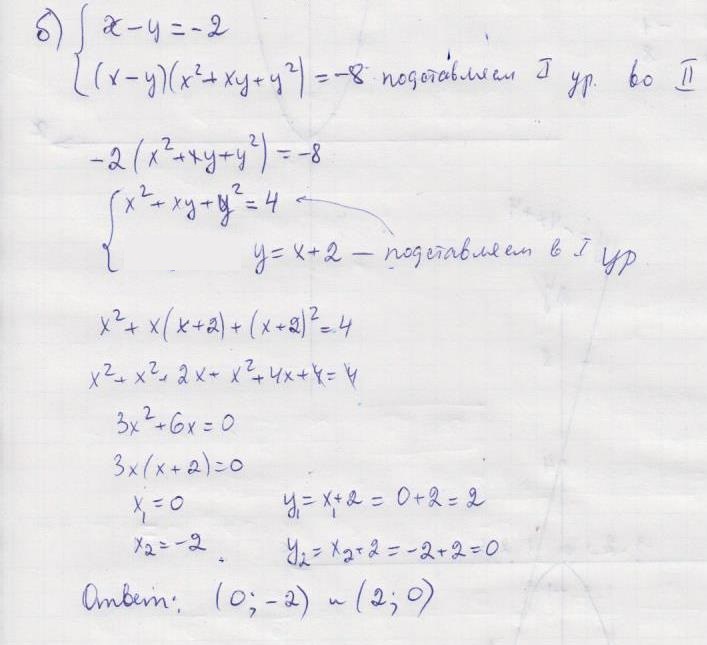 б) { x - y = -2
(x - y)(x² + xy + y²) = -8 подставляем I ур. во II
-2(x² + xy + y²) = -8
{ x² + xy + y² = 4
y = x + 2 — подставляем в I ур
x² + x(x + 2) + (x + 2)² = 4
x² + x² + 2x + x² + 4x + 4 = 4
3x² + 6x = 0
3x(x + 2) = 0
x₁ = 0 y₁ = x₁ + 2 = 0 + 2 = 2
x₂ = -2. y₂ = x₂ + 2 = -2 + 2 = 0
Ответ: (0; -2) и (2; 0)